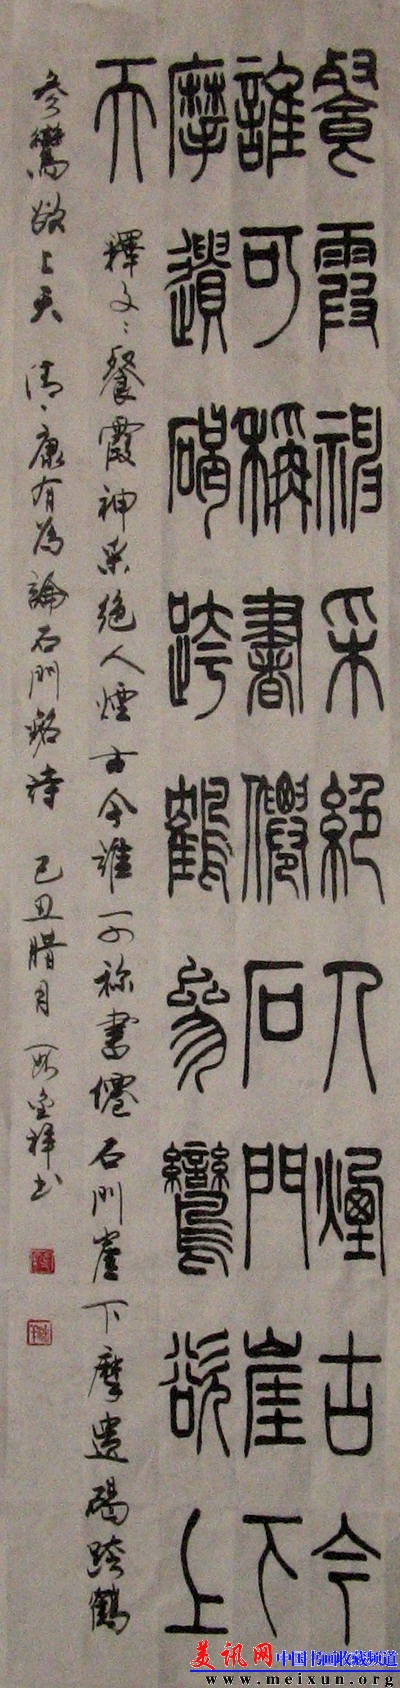 餐霞神采絕人煙古今
誰可稱書僊石門崖下
摩遺碣跨鶴參鸞欲上
天
釋文：餐霞神采絕人煙古今誰可稱書僊石門崖下摩遺碣跨鶴
參鸞欲上天 清·康有為論石門銘詩 己丑腊月 金祥书
美讯网 中国书画收藏频道
www.meixun.org